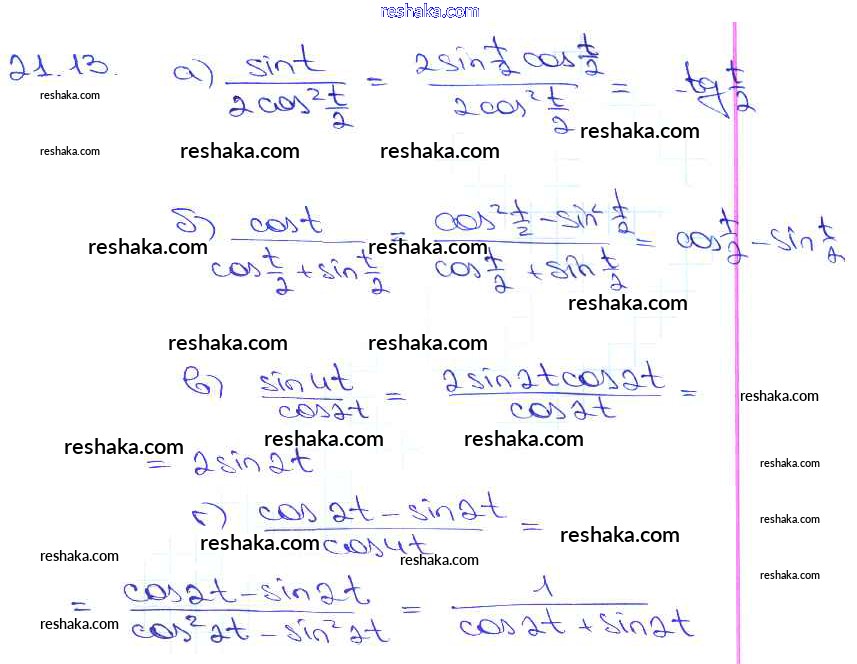 reshaka.com
21.13. а) sin t / 2cos² t/2 = 2sin t/2 cos t/2 / 2cos² t/2 = tg t/2
reshaka.com reshaka.com
reshaka.com reshaka.com reshaka.com
б) cos t / cos t/2 + sin t/2 = cos² t/2 - sin² t/2 / cos t/2 + sin t/2 = cos t/2 - sin t/2
reshaka.com reshaka.com
reshaka.com
reshaka.com reshaka.com
в) sin4t / cos2t = 2sin2tcos2t / cos2t =
reshaka.com
reshaka.com reshaka.com reshaka.com
= 2sin2t
reshaka.com
г) cos2t - sin2t / cos4t =
reshaka.com
reshaka.com reshaka.com
reshaka.com reshaka.com
reshaka.com
= cos2t - sin2t / cos²2t - sin²2t = 1 / cos2t + sin2t
reshaka.com